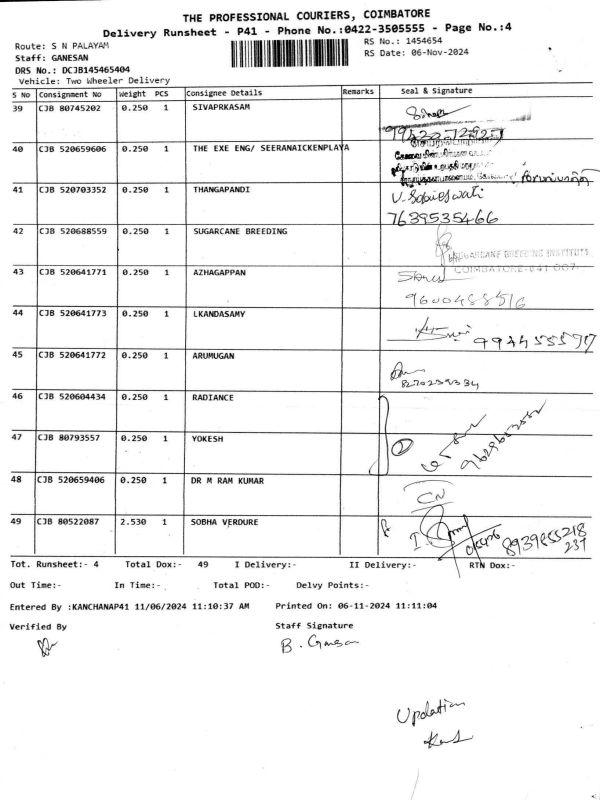 THE PROFESSIONAL COURIERS, COIMBATORE
Delivery Runsheet - P41 - Phone No.:0422-3505555 - Page No.:4
Route: S N PALAYAM
RS No.: 1454654
Staff: GANESAN
RS Date: 06-Nov-2024
DRS No.: DCJB145465404
Vehicle: Two Wheeler Delivery
S No Consignment No Weight PCS Consignee Details Remarks Seal & Signature
39 CJB 80745202 0.250 1 SIVAPRKASAM
40 CJB 520659606 0.250 1 THE EXE ENG/ SEERANAICKENPLAYA
41 CJB 520703352 0.250 1 THANGAPANDI
7639535466
42 CJB 520688559 0.250 1 SUGARCANE BREEDING
SUGARCANE BREEDING INSTITUTE
COIMBATORE-641 007.
43 CJB 520641771 0.250 1 AZHAGAPPAN
9600488516
44 CJB 520641773 0.250 1 LKANDASAMY
45 CJB 520641772 0.250 1 ARUMUGAN
46 CJB 520604434 0.250 1 RADIANCE
47 CJB 80793557 0.250 1 YOKESH
2
48 CJB 520659406 0.250 1 DR M RAM KUMAR
CN
49 CJB 80522087 2.530 1 SOBHA VERDURE
8939855218
237
Tot. Runsheet:- 4 Total Dox:- 49 I Delivery:- II Delivery:- RTN Dox:-
Out Time:- In Time:- Total POD:- Delvy Points:-
Entered By :KANCHANAP41 11/06/2024 11:10:37 AM Printed On: 06-11-2024 11:11:04
Verified By Staff Signature
B. Ganesan
Updation